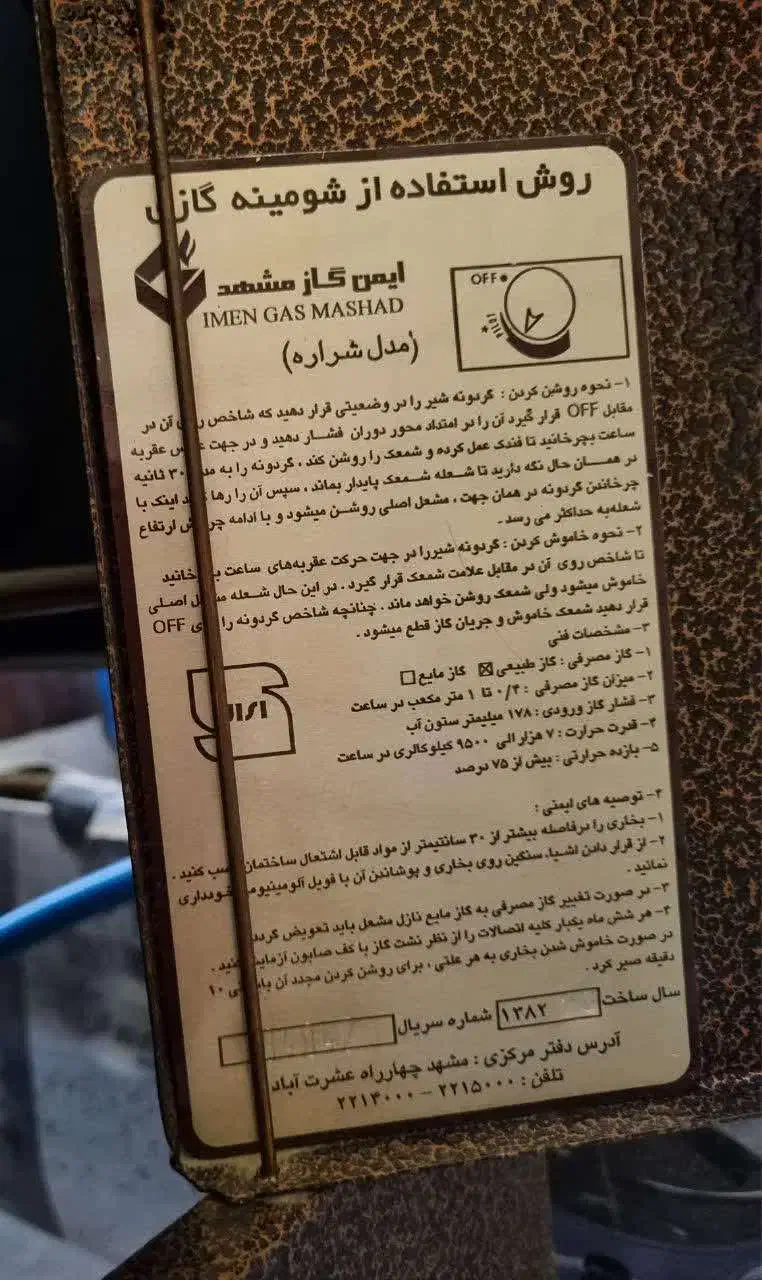 روش استفاده از شومینه گازی
ایمن گاز مشهد
IMEN GAS MASHAD
(مدل شراره)
OFF
۱- نحوه روشن کردن : گردونه شیر را در وضعیتی قرار دهید که شاخص روی آن در
مقابل OFF قرار گیرد آن را در امتداد محور دوران فشار دهید و در جهت عکس عقربه
ساعت بچرخانید تا فندک عمل کرده و شمعک را روشن کند ، گردونه را به مدت ۳۰ ثانیه
در همان حال نگه دارید تا شعله شمعک پایدار بماند ، سپس آن را رها کنید اینک با
چرخاندن گردونه در همان جهت ، مشعل اصلی روشن میشود و با ادامه چرخش ارتفاع
شعله به حداکثر می رسد .
۲- نحوه خاموش کردن : گردونه شیر را در جهت حرکت عقربه های ساعت بچرخانید
تا شاخص روی آن در مقابل علامت شمعک قرار گیرد . در این حال شعله مشعل اصلی
خاموش میشود ولی شمعک روشن خواهد ماند . چنانچه شاخص گردونه را روی OFF
قرار دهید شمعک خاموش و جریان گاز قطع میشود .
۳- مشخصات فنی
۱- گاز مصرفی : گاز طبیعی ☒ گاز مایع ☐
۲- میزان گاز مصرفی : ۰/۴ تا ۱ متر مکعب در ساعت
۳- فشار گاز ورودی : ۱۷۸ میلیمتر ستون آب
۴- قدرت حرارت : ۷ هزار الی ۹۵۰۰ کیلوکالری در ساعت
۵- بازده حرارتی : بیش از ۷۵ درصد
۴- توصیه های ایمنی :
۱- بخاری را درفاصله بیشتر از ۳۰ سانتیمتر از مواد قابل اشتعال ساختمان نصب کنید .
۲- از قرار دادن اشیاء سنگین روی بخاری و پوشاندن آن با فویل آلومینیومی خودداری
نمائید .
۳- در صورت تغییر گاز مصرفی به گاز مایع نازل مشعل باید تعویض گردد
۴- هر شش ماه یکبار کلیه اتصالات را از نظر نشت گاز با کف صابون آزمایش کنید .
در صورت خاموش شدن بخاری به هر علتی ، برای روشن کردن مجدد آن بایستی ۱۰
دقیقه صبر کرد .
سال ساخت ۱۳۸۲ شماره سریال
آدرس دفتر مرکزی : مشهد چهارراه عشرت آباد
تلفن : ۲۲۱۵۰۰۰ - ۲۲۱۴۰۰۰